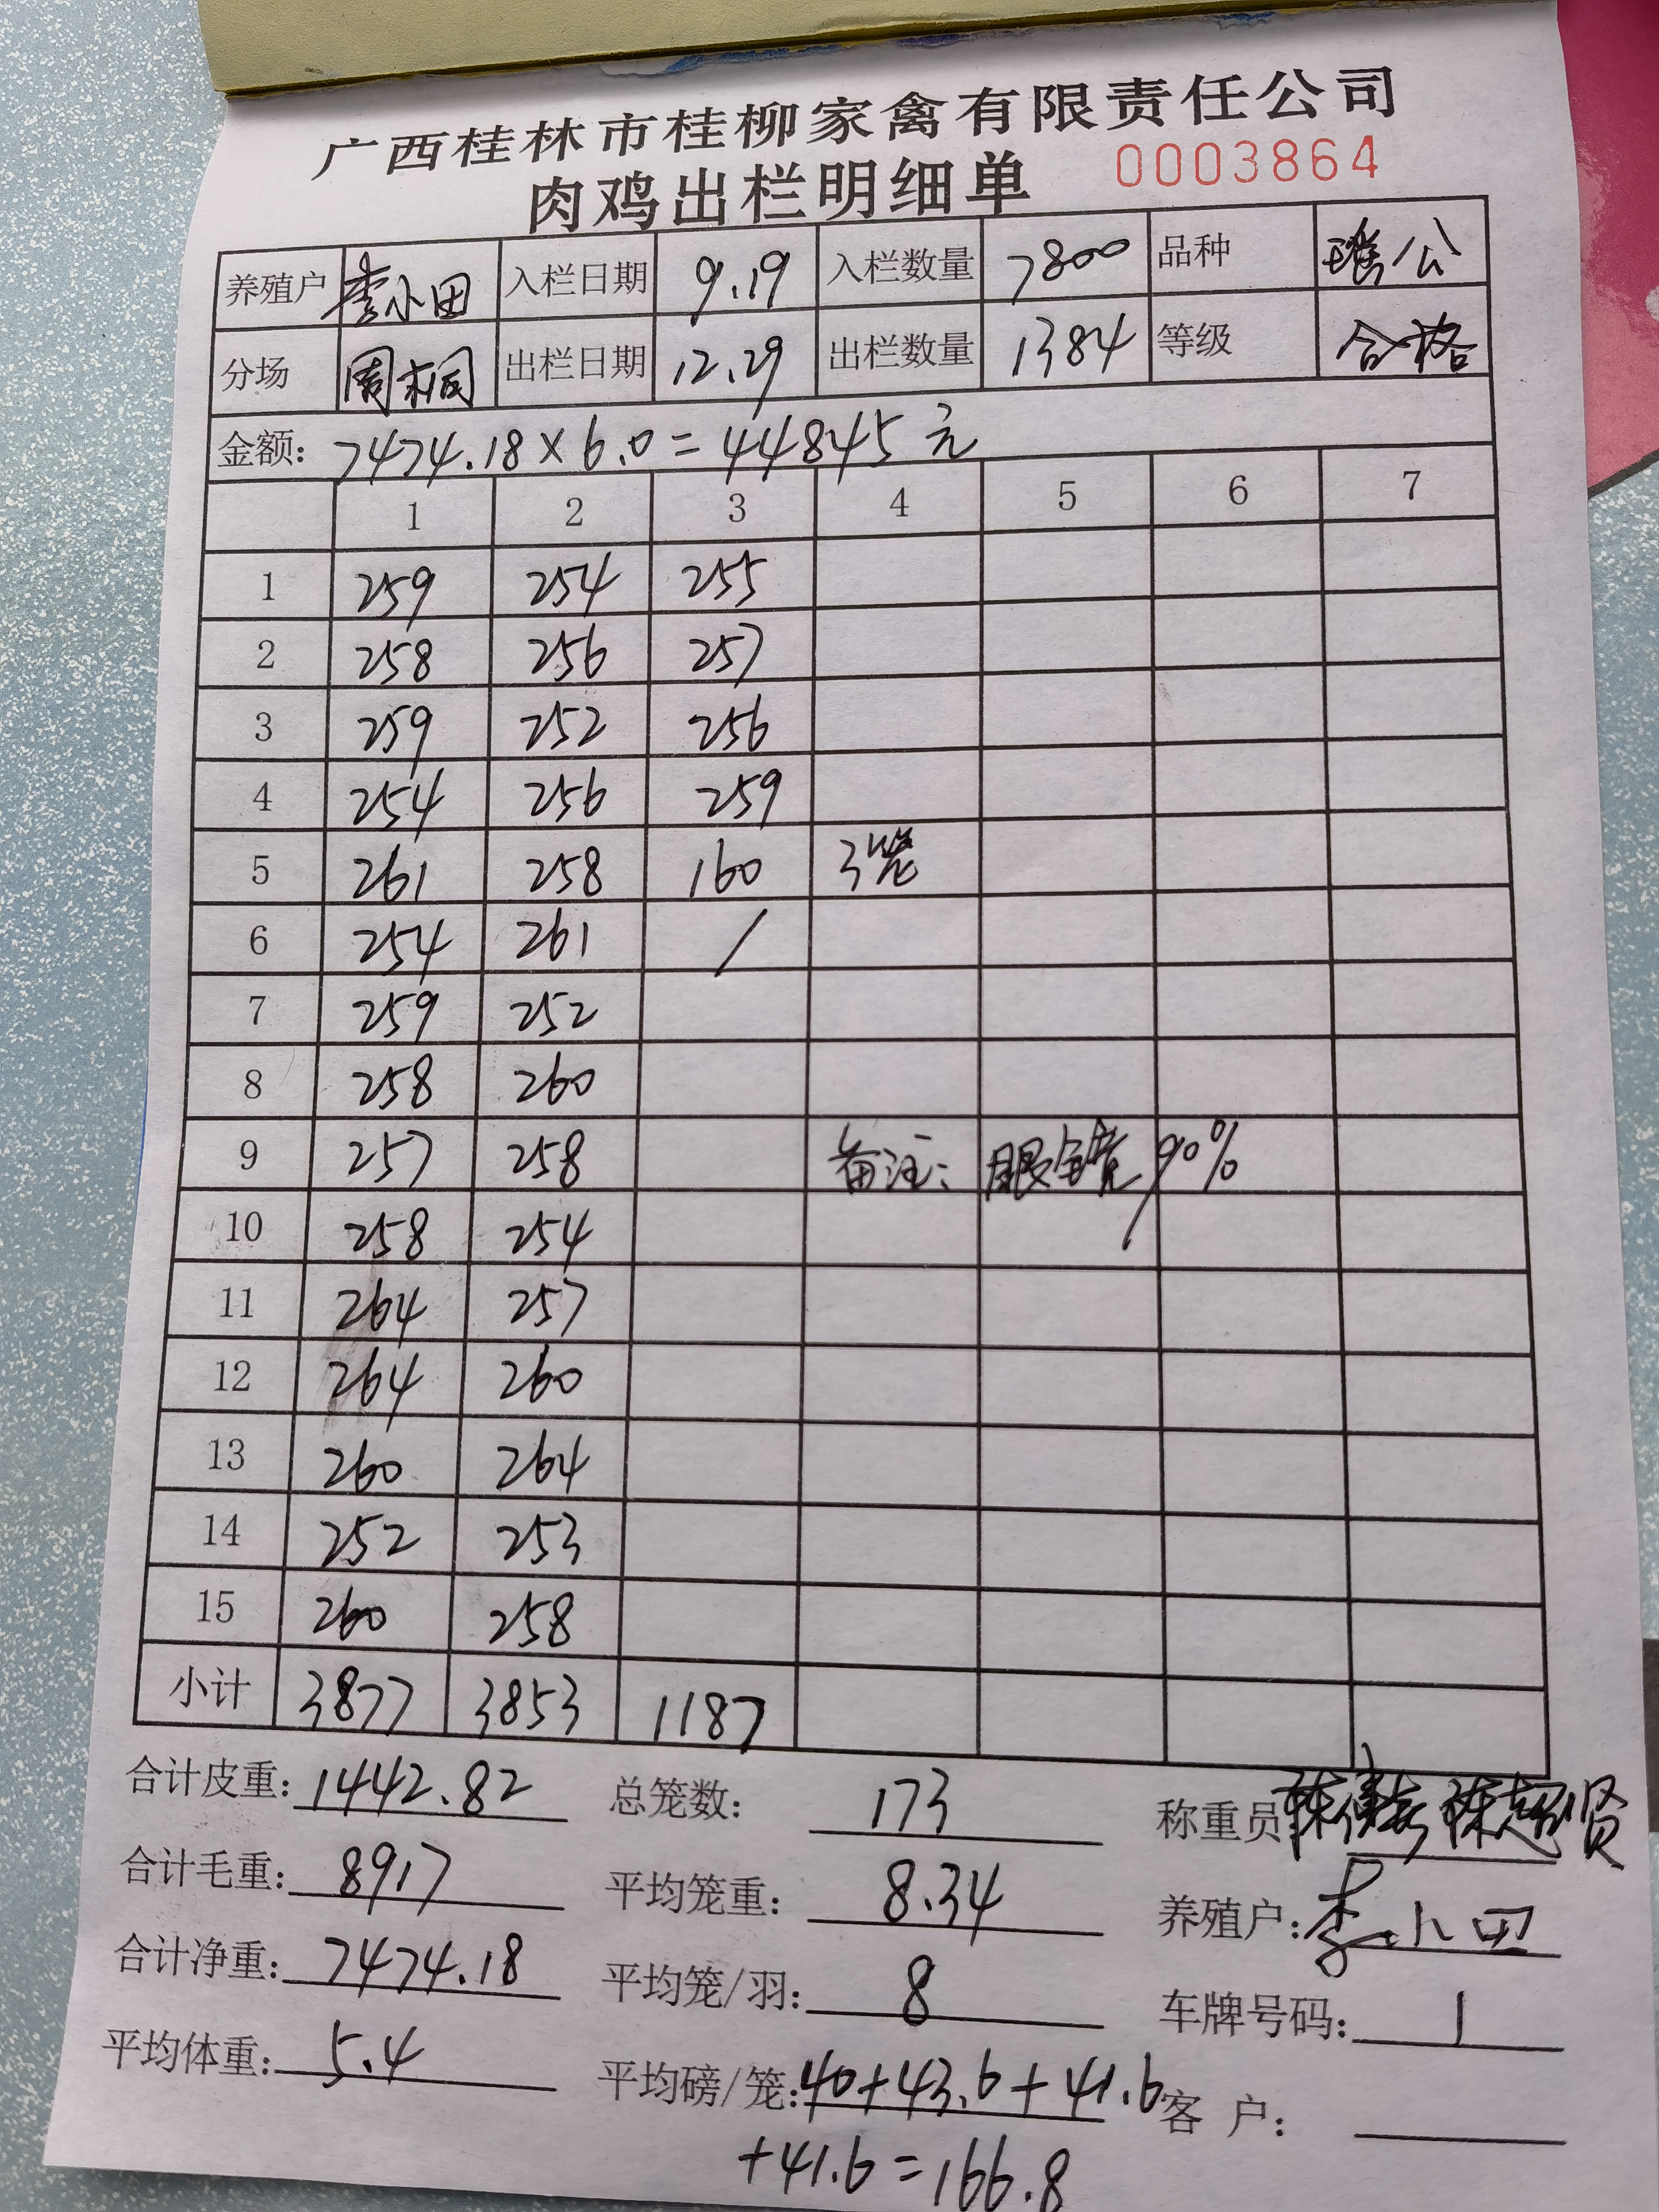 广西桂林市桂柳家禽有限责任公司
肉鸡出栏明细单 0003864
养殖户 李小田 入栏日期 9.19 入栏数量 7800 品种 瑶公
分场 周桐 出栏日期 12.29 出栏数量 1384 等级 合格
金额: 7474.18×6.0=44845元
1 2 3 4 5 6 7
1 259 254 255
2 258 256 257
3 259 252 256
4 254 256 259
5 261 258 160 3笼
6 254 261 /
7 259 252
8 258 260
9 257 258 备注: 眼全虎 90%
10 258 254
11 264 257
12 264 260
13 260 264
14 252 253
15 260 258
小计 3877 3853 1187
合计皮重: 1442.82 总笼数: 173 称重员 陈超贤
合计毛重: 8917 平均笼重: 8.34 养殖户: 李小田
合计净重: 7474.18 平均笼/羽: 8 车牌号码: 1
平均体重: 5.4 平均磅/笼: 40+43.6+41.6 客 户:
+41.6=166.8